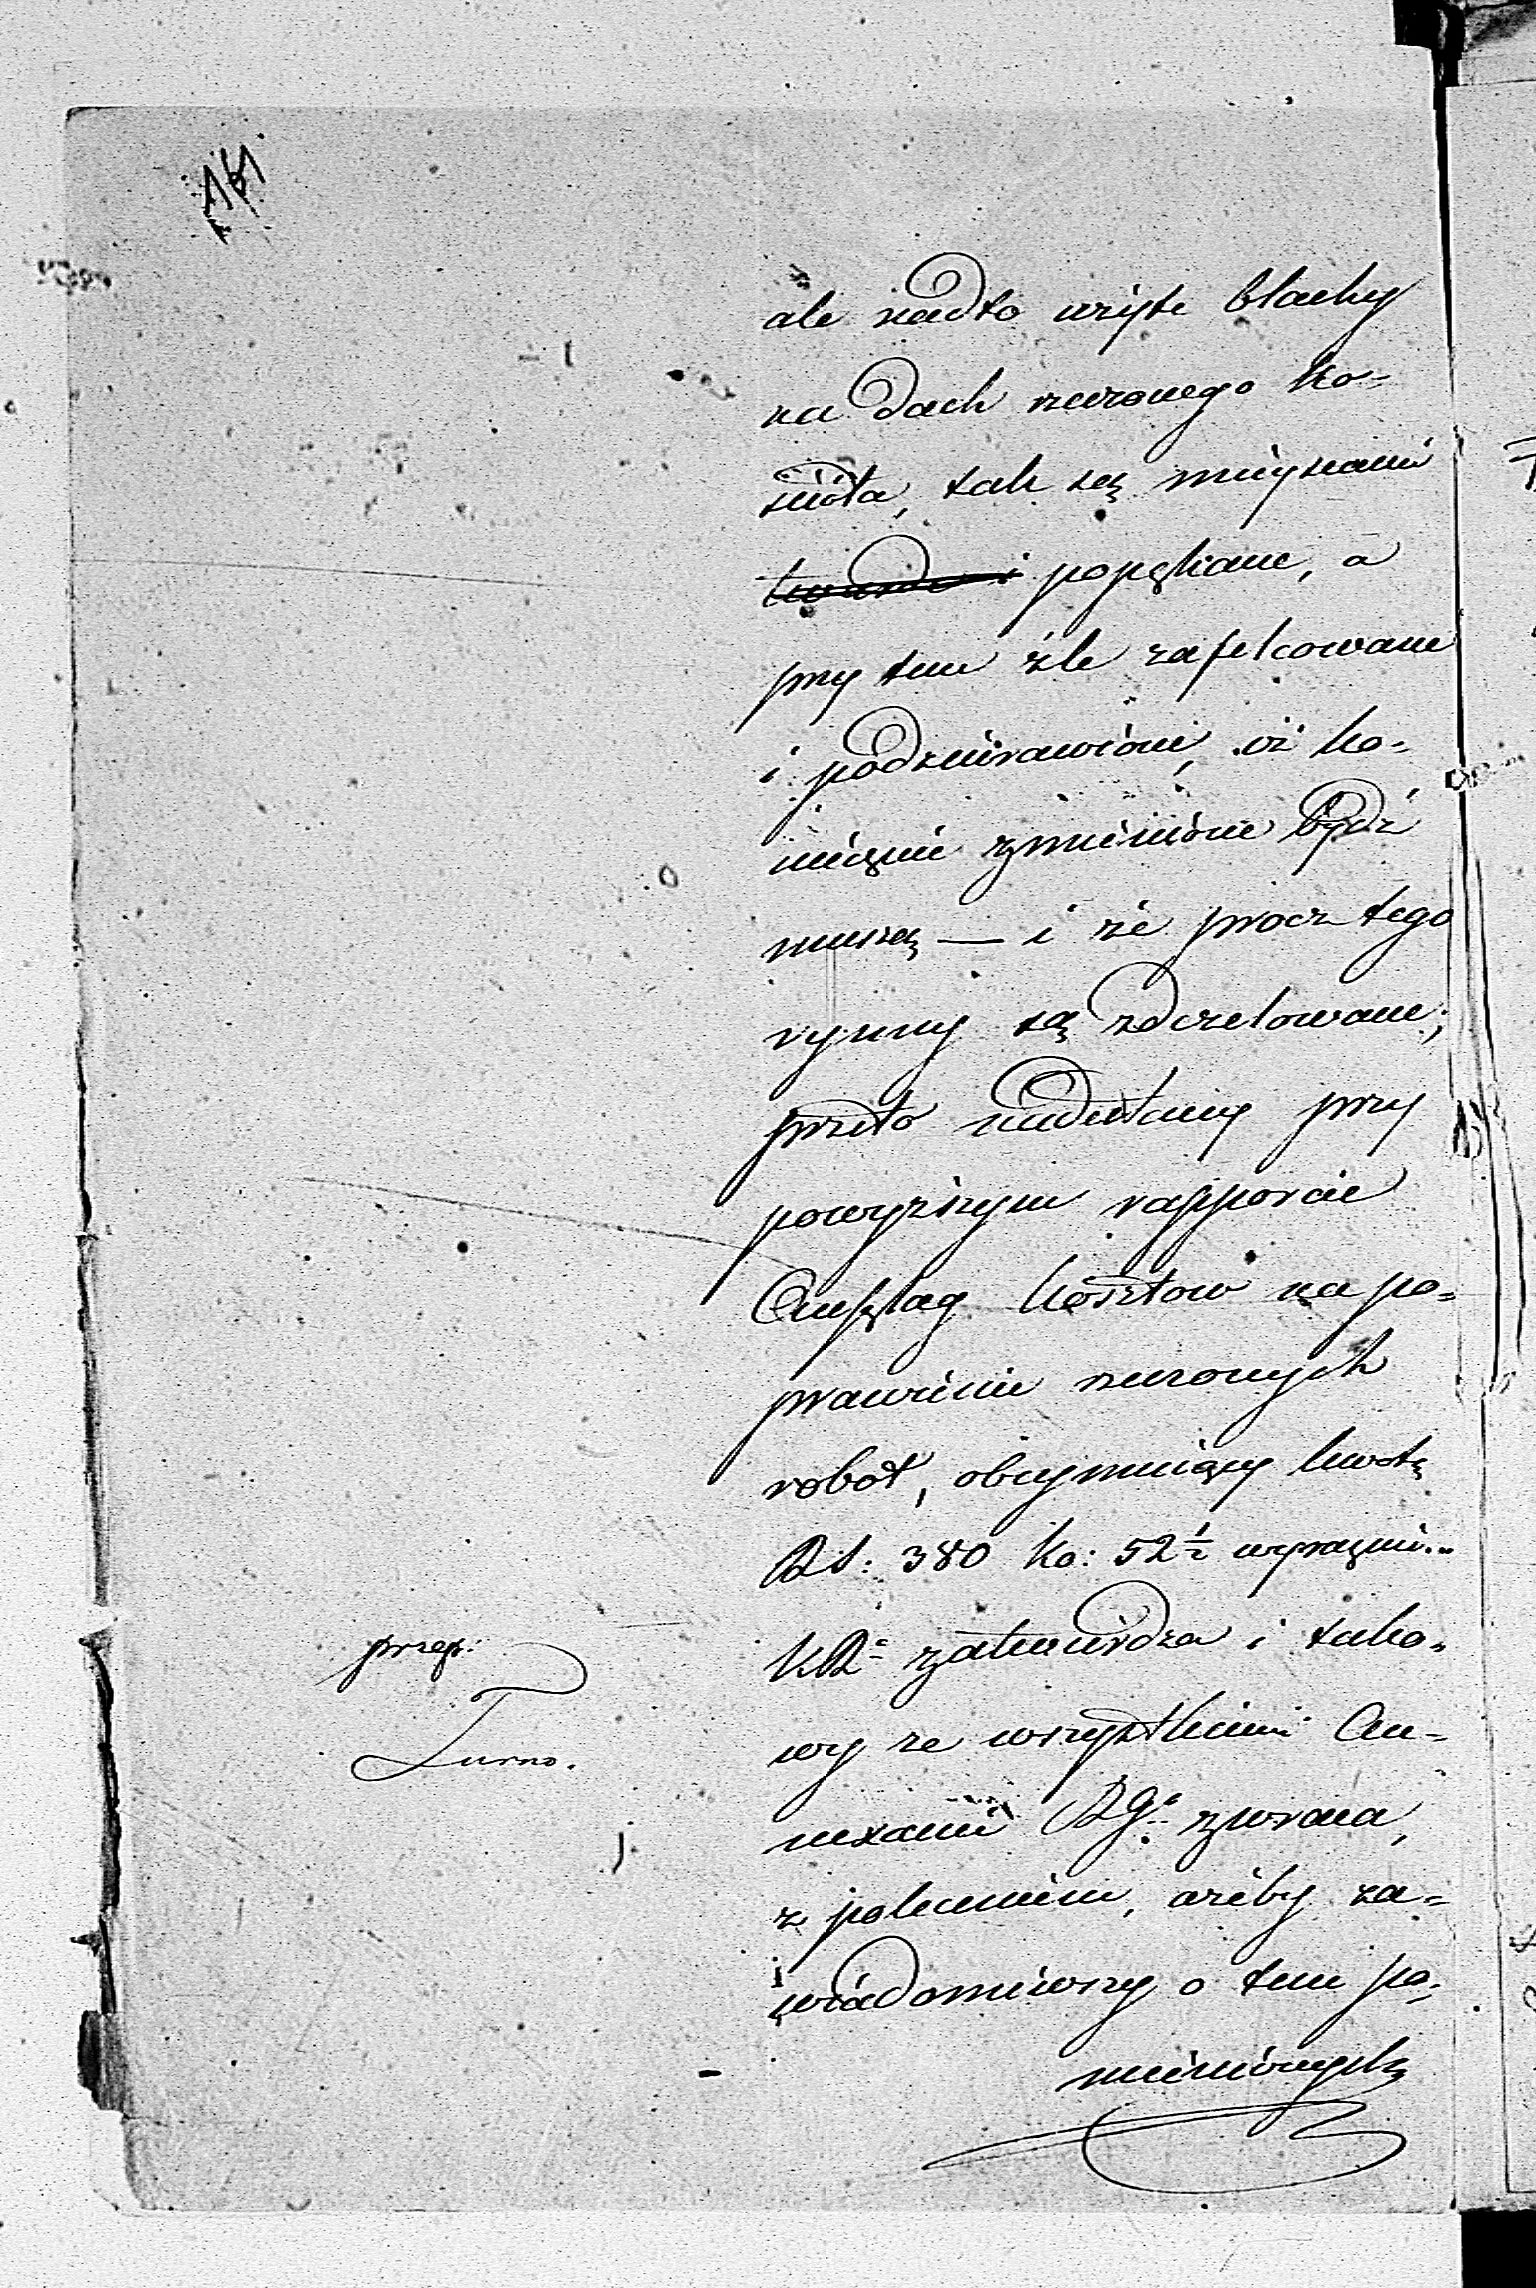 161
ale nadto użyte blachy
na dach rzeczonego Ko-
ścioła, tak są mieyscami
twarde i popękane, a
przy tem źle zafelcowane
i podziurawione, iż ko-
niecznie zmienione bydź
muszą — i że procz tego
rynny są zdezelowane;
przeto nadesłany przy
powyższym rapporcie
Anszlag kosztow na po-
prawienie rzeczonych
robot, obeymuiący kwotę
RS: 380 ko: 52½ wyraźnie...
KR. zatwierdza i tako-
wy ze wszystkiemi An-
nexami RGu. zwraca,
z poleceniem, ażeby za-
wiadomiwszy o tem po-
mienionych
przep:
Turno.